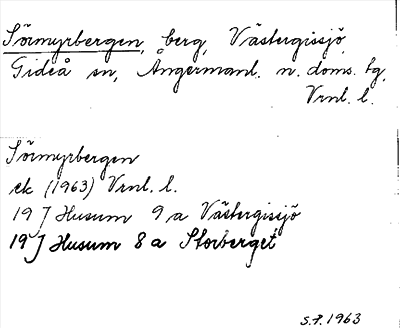 Sörmyrbergen, berg, Västergissjö,
Gideå sn, Ångermanl. n. doms. tg,
Vrnl. l.
Sörmyrbergen
ek (1963) Vrnl. l.
19 J Husum 9 a Västergissjö
19 J Husum 8 a Storberget
S.F. 1963